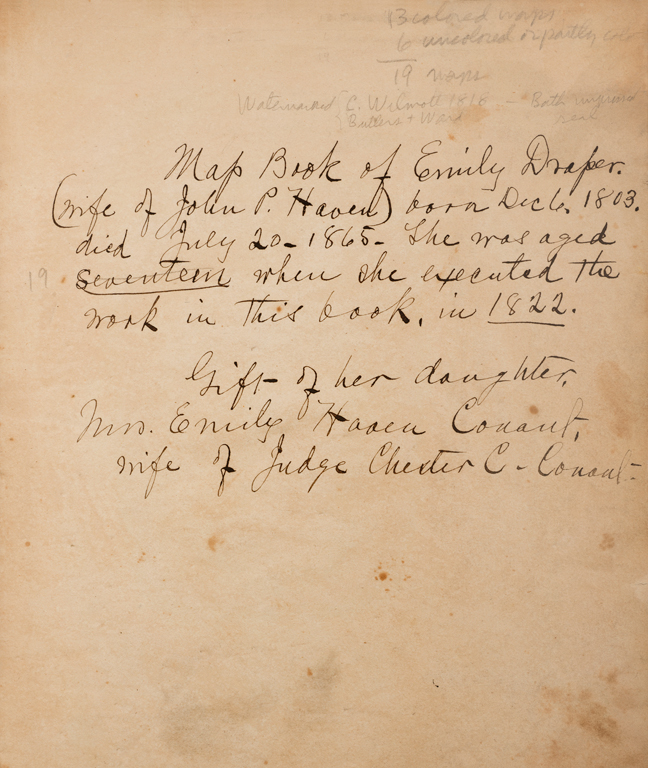 13 colored maps
6 uncolored or partly col
19 maps
Watermarked C. Wilmott 1818 - Both
Butters + Ward
Map Book of Emily Draper.
(wife of John P. Haven) born Dec 6, 1803.
died July 20 - 1865 - She was aged
19 seventeen when she executed the
work in this book, in 1822.
Gift of her daughter,
Mrs. Emily Haven Conant,
wife of Judge Chester C - Conant -